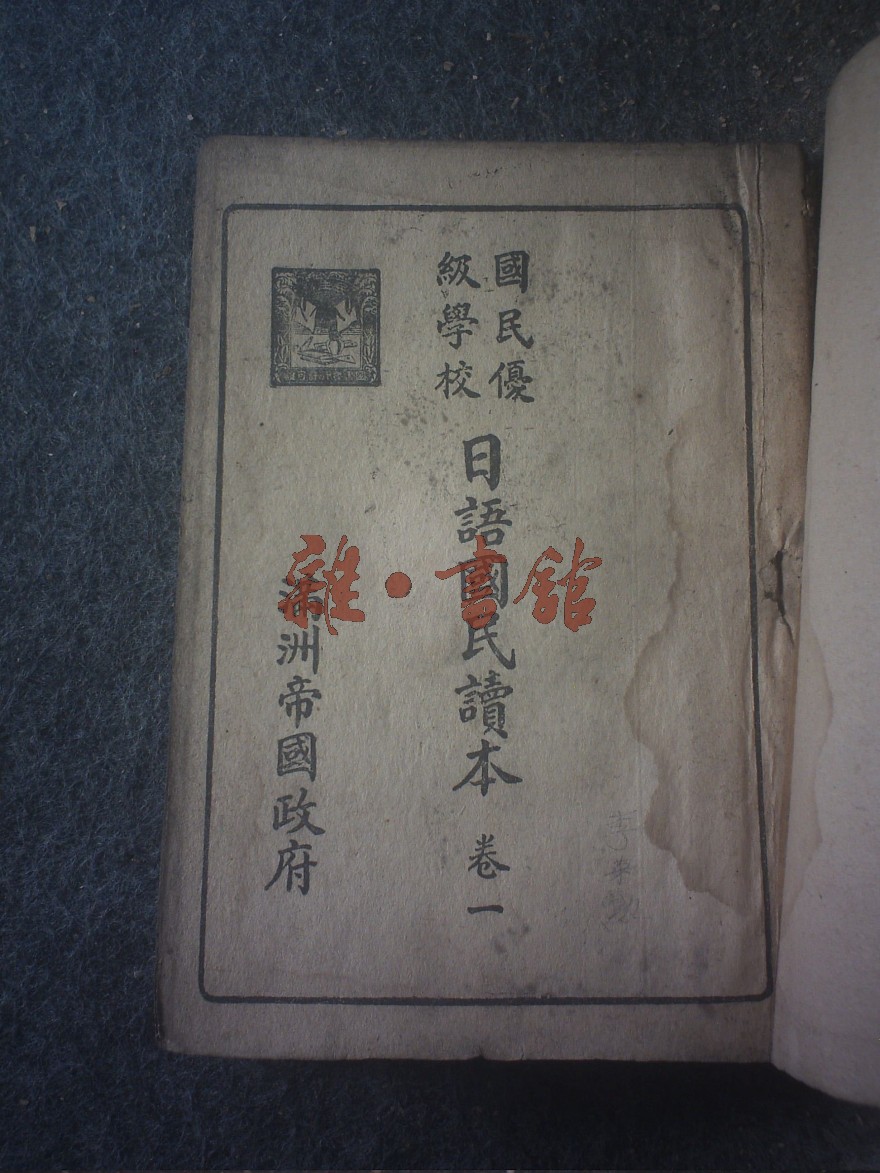 國民優
級學校
日語國民讀本 卷一
滿洲帝國政府
雜·書館